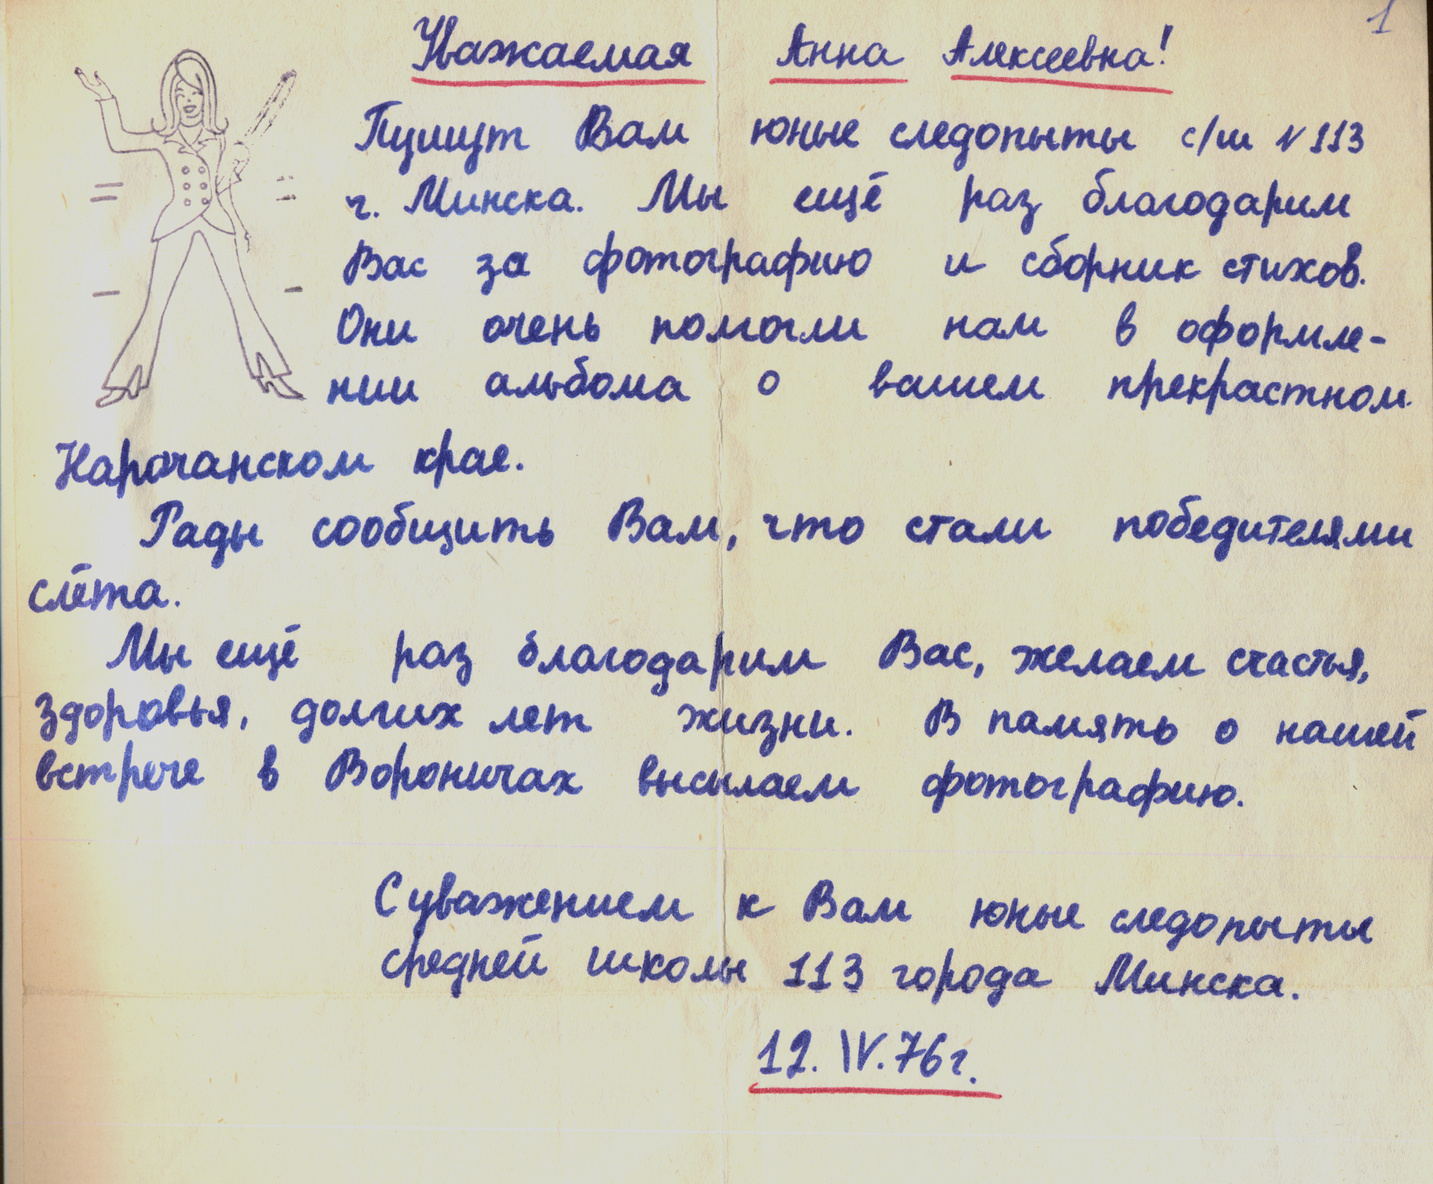 1
Уважаемая Анна Алексеевна!
Пишут Вам юные следопыты с/ш N113
г. Минска. Мы ещё раз благодарим
Вас за фотографию и сборник стихов.
Они очень помогли нам в оформле-
нии альбома о вашем прекрастном
Нарочанском крае.
Рады сообщить Вам, что стали победителями
слёта.
Мы ещё раз благодарим Вас, желаем счастья,
здоровья, долгих лет жизни. В память о нашей
встрече в Вороничах высылаем фотографию.
С уважением к Вам юные следопыты
средней школы 113 города Минска.
12. IV. 76 г.